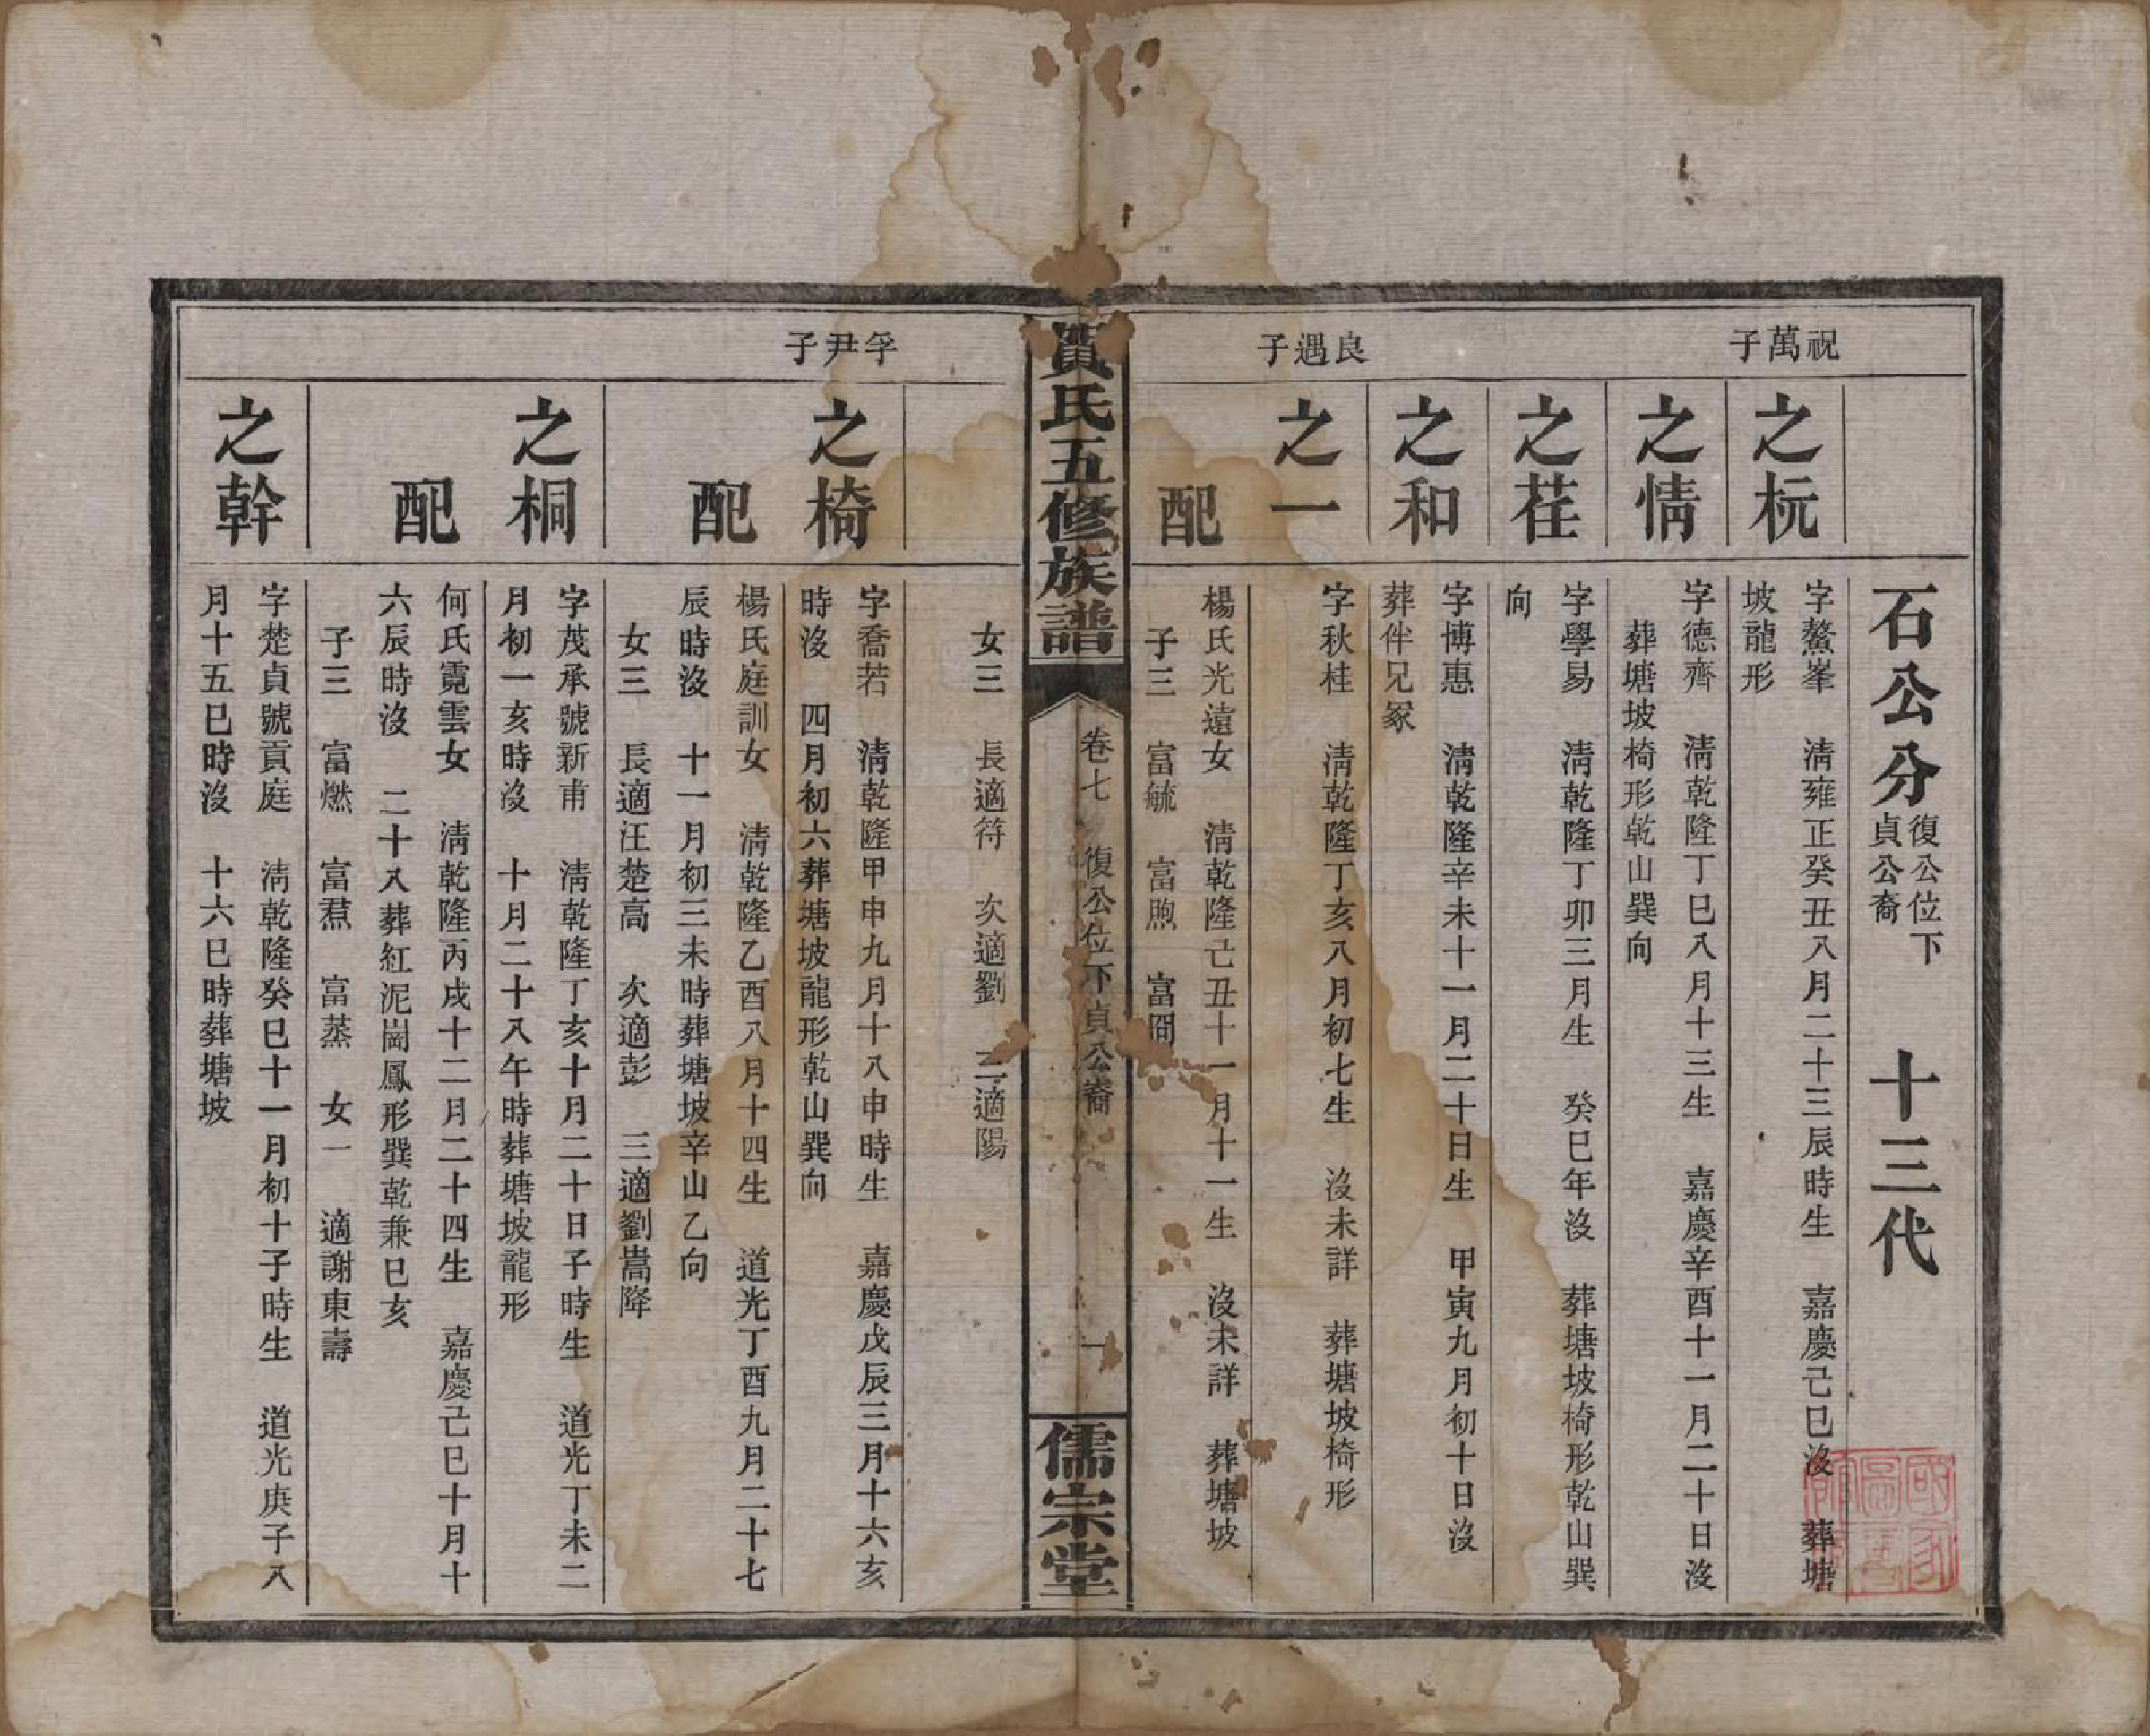 石公分 復公位下 貞公裔 十三代
祝萬子
之杬
字鰲峯 淸雍正癸丑八月二十三辰時生 嘉慶己巳沒 葬塘
坡龍形
之情
字德齊 淸乾隆丁巳八月十三生 嘉慶辛酉十一月二十日沒
葬塘坡椅形乾山巽向
之荏
字學易 淸乾隆丁卯三月生 癸巳年沒 葬塘坡椅形乾山巽
向
之和
字博惠 淸乾隆辛未十一月二十日生 甲寅九月初十日沒
葬伴兄冢
良遇子
之一
字秋桂 淸乾隆丁亥八月初七生 沒未詳 葬塘坡椅形
配
楊氏光遠女 淸乾隆己丑十一月十一生 沒未詳 葬塘坡
子三 富毓 富煦 富
賀氏五修族譜
卷七 復公位下貞公裔 一
儒宗堂
女三 長適符 次適劉 三適陽
孚尹子
之椅
字喬若 淸乾隆甲申九月十八申時生 嘉慶戊辰三月十六亥
時沒 四月初六葬塘坡龍形乾山巽向
配
楊氏庭訓女 淸乾隆乙酉八月十四生 道光丁酉九月二十七
辰時沒 十一月初三未時葬塘坡辛山乙向
女三 長適汪楚高 次適彭 三適劉嵩降
之桐
字茂承號新甫 淸乾隆丁亥十月二十日子時生 道光丁未二
月初一亥時沒 十月二十八午時葬塘坡龍形
配
何氏霓雲女 淸乾隆丙戌十二月二十四生 嘉慶己巳十月十
六辰時沒 二十八葬紅泥崗鳳形巽乾兼巳亥
子三 富燃 富焄 富蒸 女一 適謝東壽
之幹
字楚貞號貢庭 淸乾隆癸巳十一月初十子時生 道光庚子八
月十五巳時沒 十六巳時葬塘坡